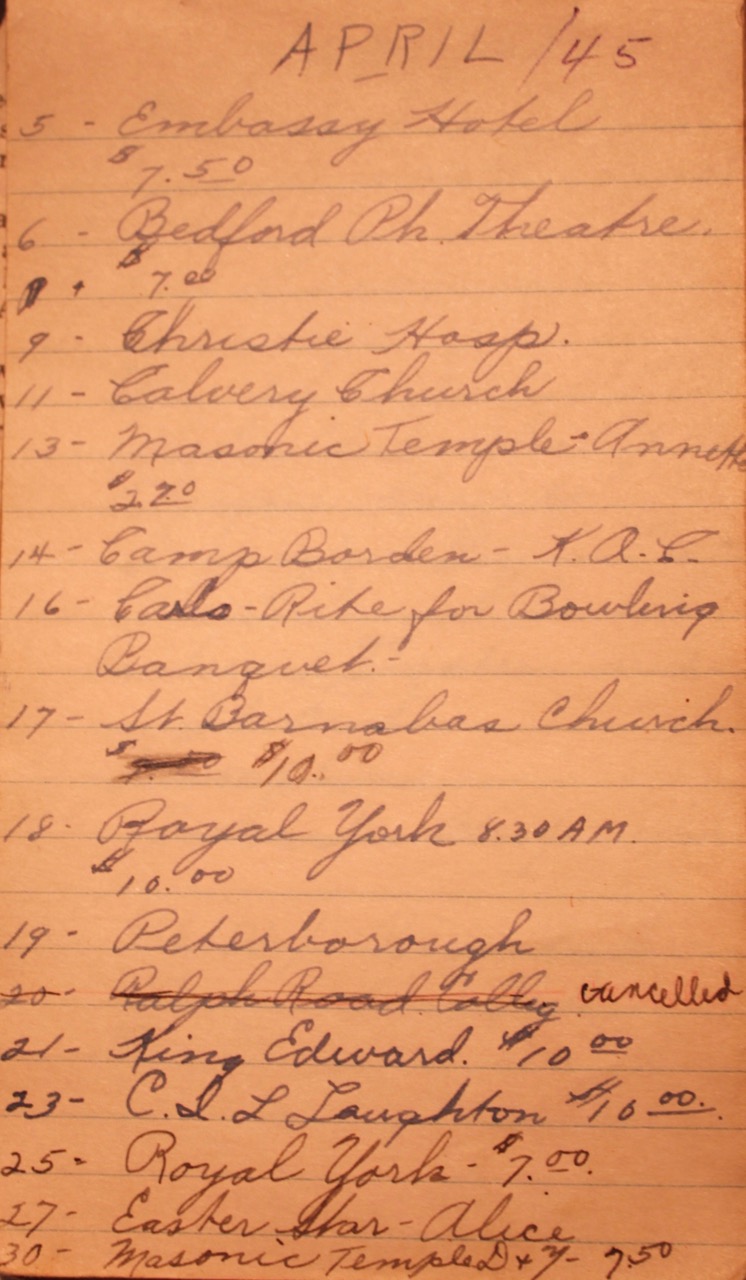 APRIL /45
5 - Embassy Hotel
$7.50
6 - Bedford Ph. Theatre.
$7.00
9 - Christie Hosp.
11 - Calvery Church
13 - Masonic Temple - Annette
$2.70
14 - Camp Borden - K.O.C.
16 - - Rite for Bowling
Banquet. -
17 - St. Barnabas Church.
$10.00
18 - Royal York 8.30 AM.
$10.00
19 - Peterborough
20 - Ralph Road Colby cancelled
21 - King Edward. $10 00
23 - C.I.L Laughton $10 00.
25 - Royal York - $7.00.
27 - Easter Star - Alice
30 - Masonic Temple - 7.50